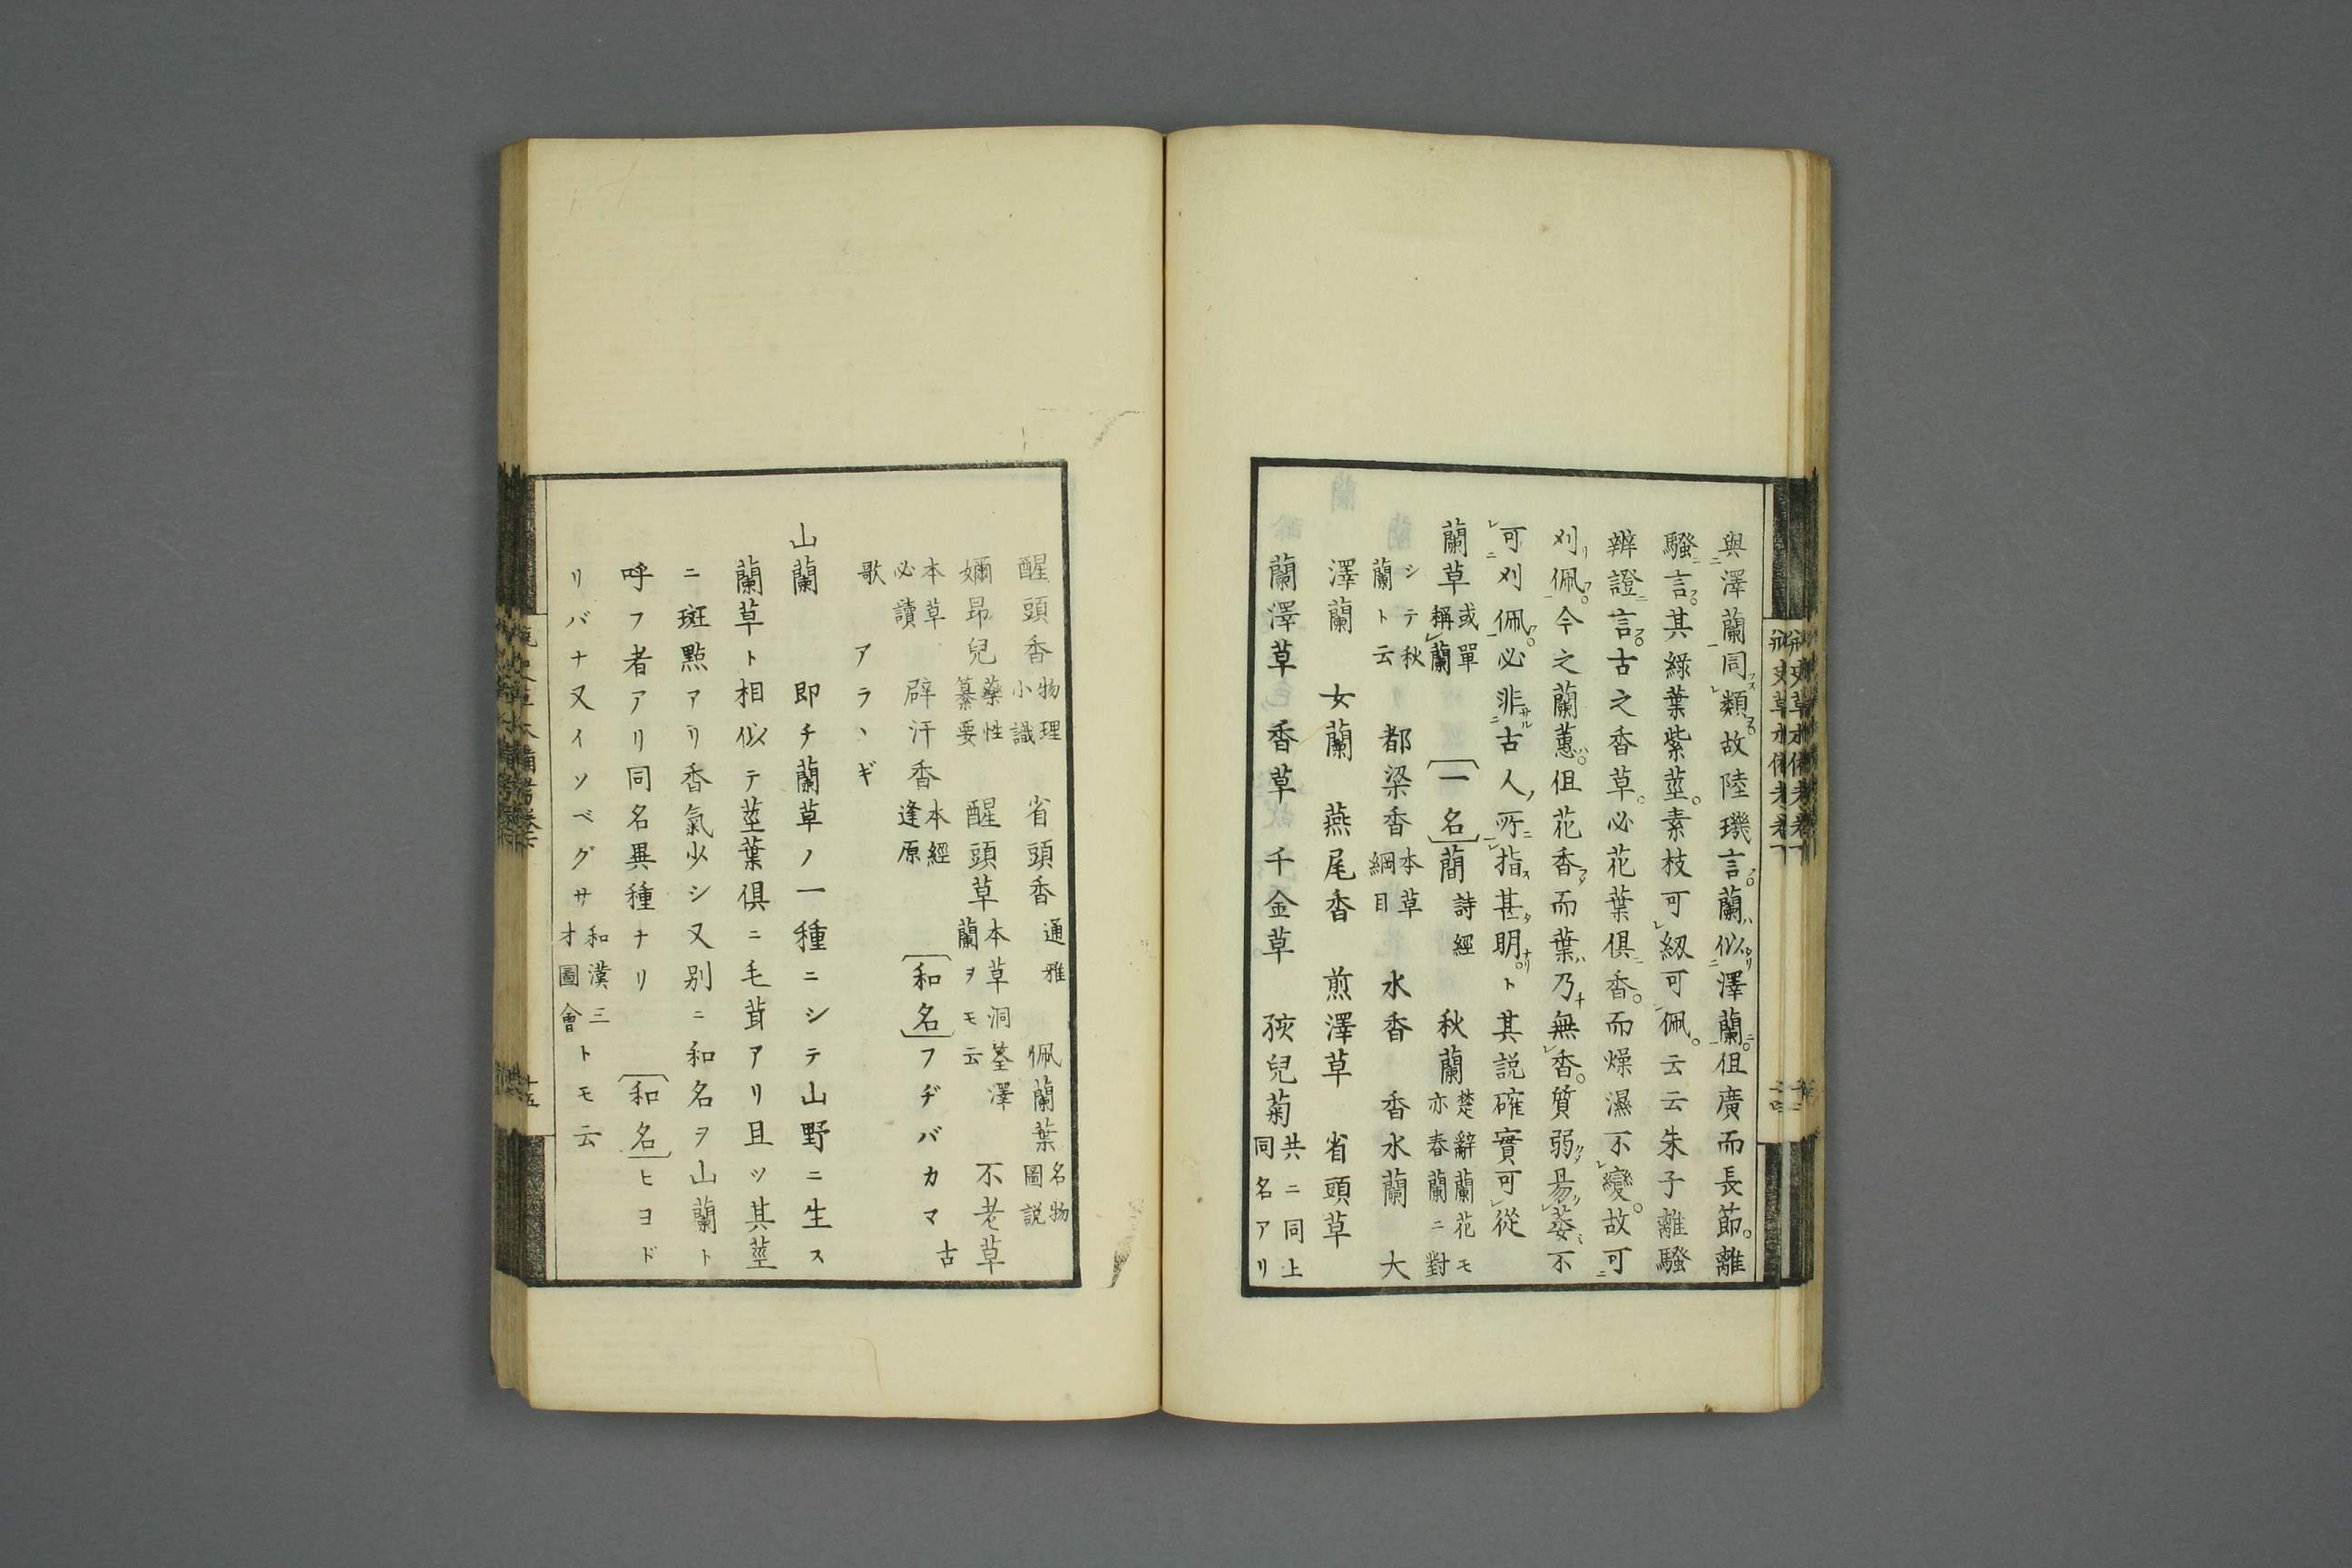 與澤蘭同類故陸璣言蘭似澤蘭但廣而長節離
騷言其綠葉紫莖素枝可紉可佩云云朱子離騷
辨證言古之香草必花葉俱香而燥濕不變故可
刈佩今之蘭蕙但花香而葉乃無香質弱易萎不
可刈佩必非古人所指甚明ト其說確實可從
蘭草或單稱蘭〔一名〕蕳詩經 秋蘭楚辭蘭花モ亦春蘭ニ對
シテ秋蘭ト云 都梁香本草綱目 水香 香水蘭 大
澤蘭 女蘭 燕尾香 煎澤草 省頭草
蘭澤草 香草 千金草 孩兒菊共ニ同上同名アリ
醒頭香物理小識 省頭香通雅 佩蘭葉名物圖說
嬭昻兒藥性纂要 醒頭草本草洞筌澤蘭ヲモ云 不老草
本草必讀 辟汗香本經逢原 〔和名〕フヂバカマ古
歌 アラヽギ
山蘭 即チ蘭草ノ一種ニシテ山野ニ生ス
蘭草ト相似テ莖葉俱ニ毛茸アリ且ツ其莖
ニ斑點アリ香氣少シ又別ニ和名ヲ山蘭ト
呼フ者アリ同名異種ナリ 〔和名〕ヒヨド
リバナ又イソベグサ和漢三才圖會トモ云
十五